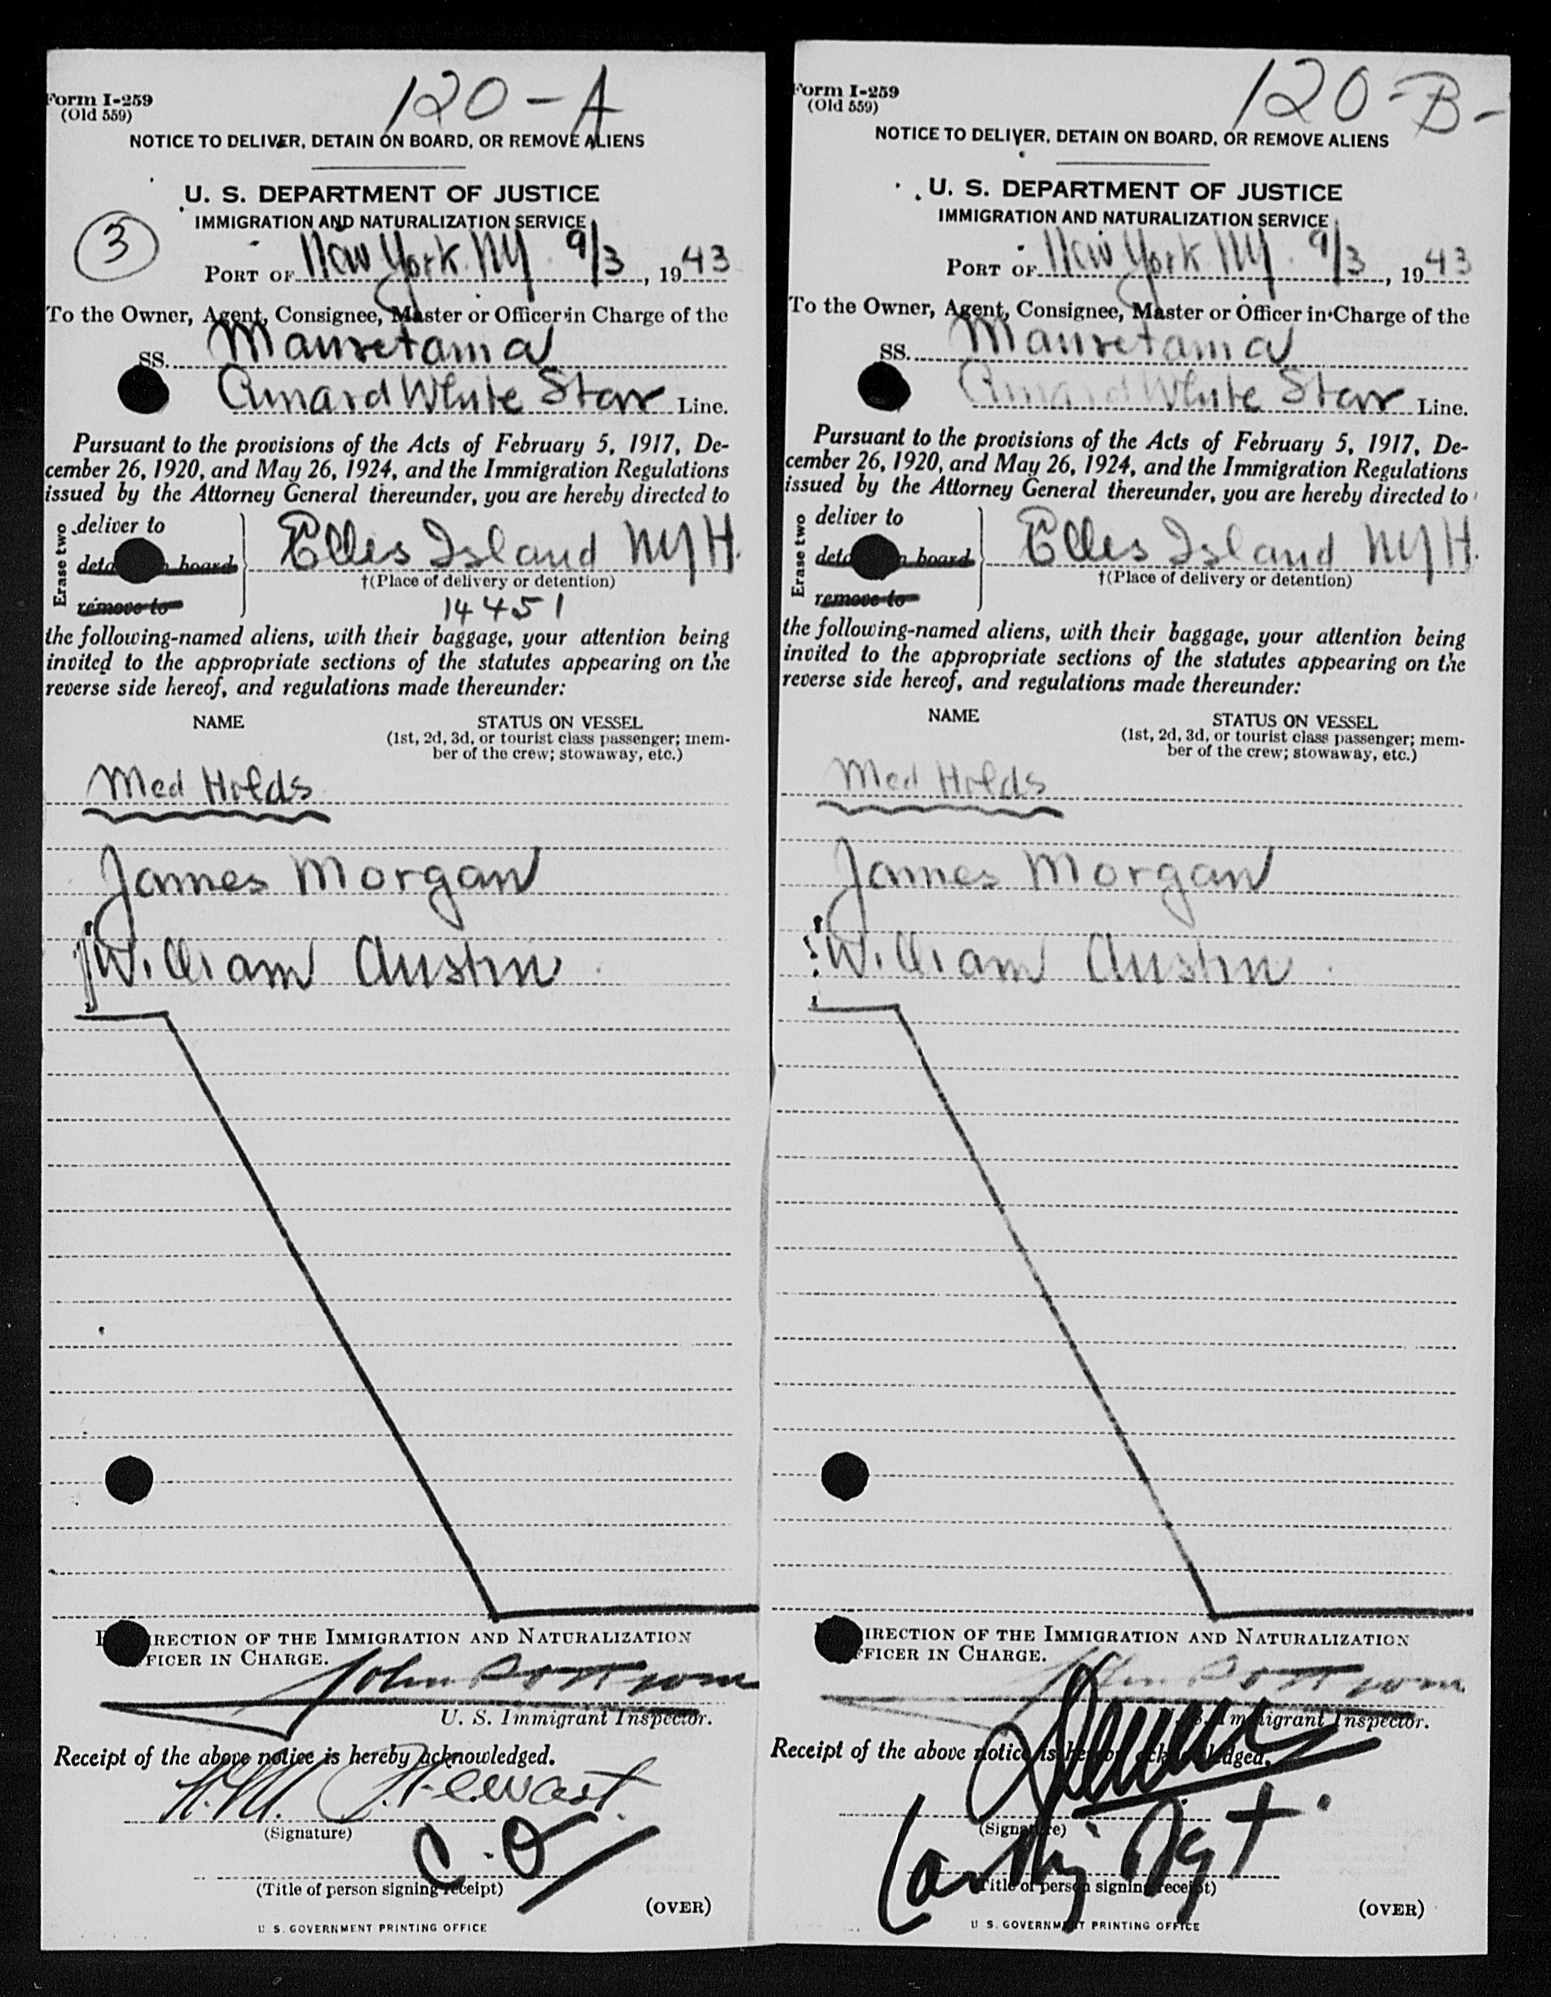 120-A
Form I-259
(Old 559)
NOTICE TO DELIVER, DETAIN ON BOARD, OR REMOVE ALIENS
U. S. DEPARTMENT OF JUSTICE
IMMIGRATION AND NATURALIZATION SERVICE
3
PORT OF New York NY. 9/3, 1943
To the Owner, Agent, Consignee, Master or Officer in Charge of the
SS. Mauretania
Cunard White Star Line.
Pursuant to the provisions of the Acts of February 5, 1917, De-
cember 26, 1920, and May 26, 1924, and the Immigration Regulations
issued by the Attorney General thereunder, you are hereby directed to
Erase two
deliver to
board
remove to
Ellis Island NYH.
†(Place of delivery or detention)
14451
the following-named aliens, with their baggage, your attention being
invited to the appropriate sections of the statutes appearing on the
reverse side hereof, and regulations made thereunder:
NAME
STATUS ON VESSEL
(1st, 2d, 3d, or tourist class passenger; mem-
ber of the crew; stowaway, etc.)
Med Holds
James Morgan
William Austin
IRECTION OF THE IMMIGRATION AND NATURALIZATION
FICER IN CHARGE.
John
U. S. Immigrant Inspector.
Receipt of the above notice is hereby acknowledged.
H.M. Stewart.
(Signature)
C.O
(Title of person signing receipt)
(OVER)
U. S. GOVERNMENT PRINTING OFFICE
120-B-
Form I-259
(Old 559)
NOTICE TO DELIVER, DETAIN ON BOARD, OR REMOVE ALIENS
U. S. DEPARTMENT OF JUSTICE
IMMIGRATION AND NATURALIZATION SERVICE
PORT OF New York NY. 9/3, 1943
To the Owner, Agent, Consignee, Master or Officer in Charge of the
SS. Mauretania
Cunard White Star Line.
Pursuant to the provisions of the Acts of February 5, 1917, De-
cember 26, 1920, and May 26, 1924, and the Immigration Regulations
issued by the Attorney General thereunder, you are hereby directed to
Erase two
deliver to
board
remove to
Ellis Island NYH.
†(Place of delivery or detention)
the following-named aliens, with their baggage, your attention being
invited to the appropriate sections of the statutes appearing on the
reverse side hereof, and regulations made thereunder:
NAME
STATUS ON VESSEL
(1st, 2d, 3d, or tourist class passenger; mem-
ber of the crew; stowaway, etc.)
Med Holds
James Morgan
William Austin
IRECTION OF THE IMMIGRATION AND NATURALIZATION
FFICER IN CHARGE.
John
U. S. Immigrant Inspector.
Receipt of the above notice is hereby acknowledged.
(Signature)
(Title of person signing receipt)
(OVER)
U. S. GOVERNMENT PRINTING OFFICE